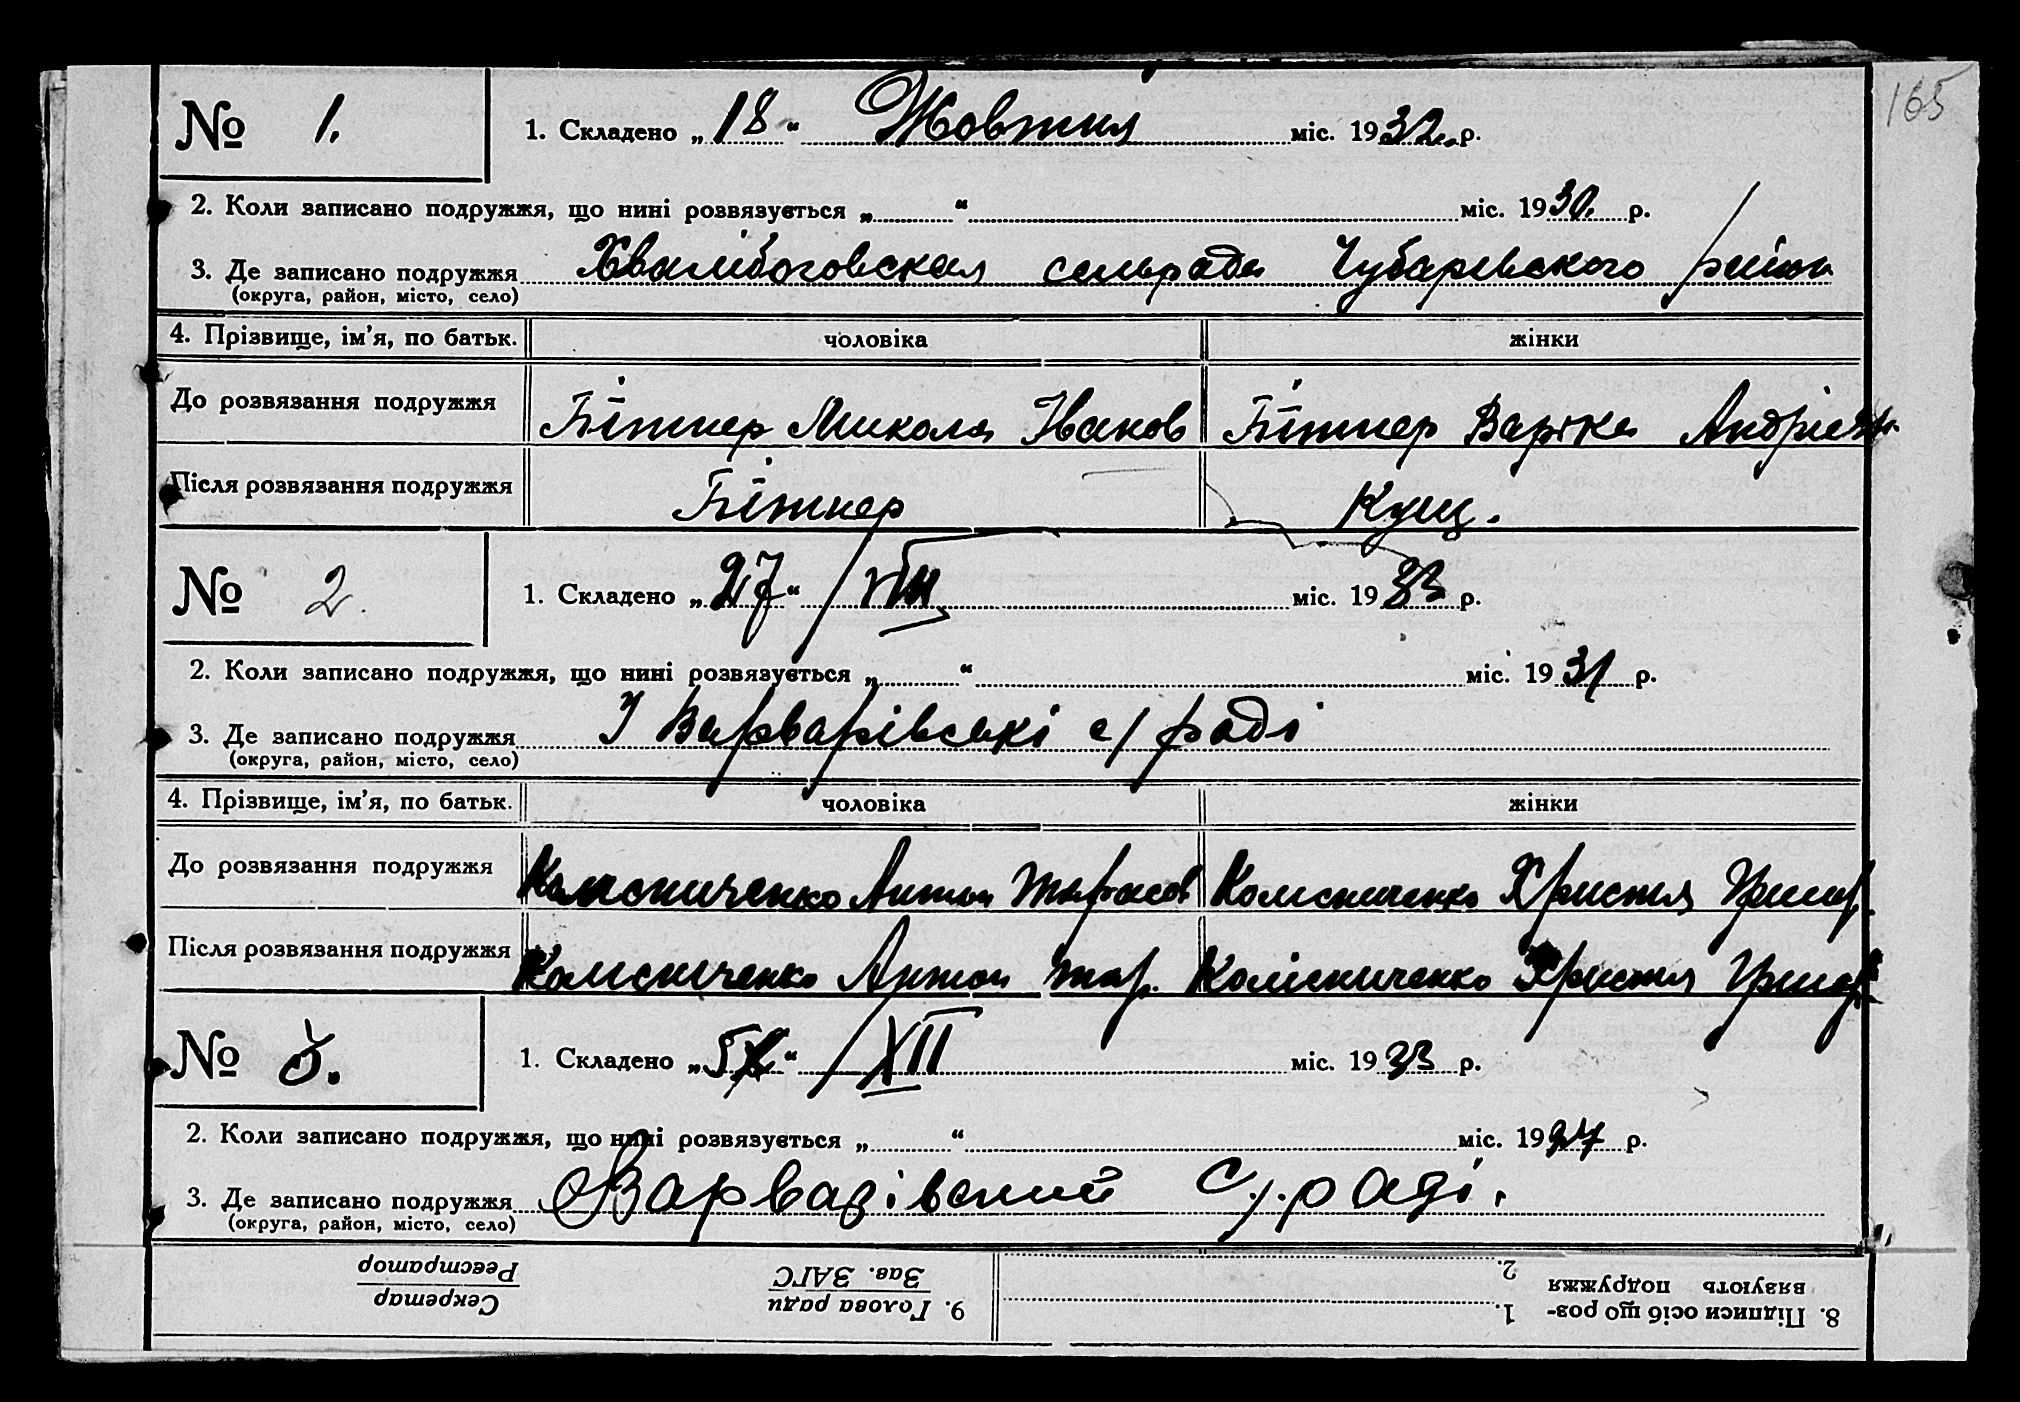 165
№ 1.
1. Складено „18“ Жовтня міс. 1932 р.
2. Коли записано подружжя, що нині розвязується „ “ міс. 1930. р.
3. Де записано подружжя Хвалібоговская сельрада Чубаревского
(округа, район, місто, село)
4. Прізвище, ім’я, по батьк. чоловіка жінки
До розвязання подружжя Бітнер Микола Іванов Бітнер Варка
Після розвязання подружжя Бітнер Кущ.
№ 2.
1. Складено „27“ / VIII міс. 1933 р.
2. Коли записано подружжя, що нині розвязується „ “ міс. 1931 р.
3. Де записано подружжя У Варварівські с/раді
(округа, район, місто, село)
4. Прізвище, ім’я, по батьк. чоловіка жінки
До розвязання подружжя Колісниченко Антон Тарасов Колісниченко Христя Григор.
Після розвязання подружжя Колісниченко Антон Тар. Колісниченко Христя Григор.
№ 3.
1. Складено „ “ / XII міс. 1933 р.
2. Коли записано подружжя, що нині розвязується „ “ міс. 1927 р.
3. Де записано подружжя Варварівский С/.раді.
(округа, район, місто, село)
8. Підписи осіб що роз- 1.
вязують подружжя 2.
9. Голова ради Секретар
Зав. ЗАГС Реєстратор